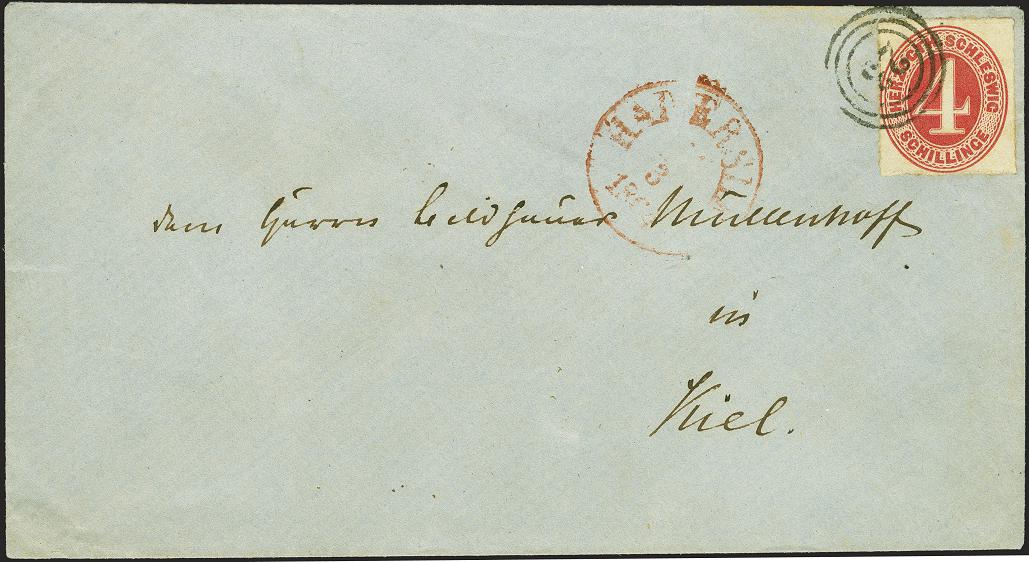 HERZOGTH. SCHLESWIG
4
SCHILLINGE
HADERSL
18
dem Herrn Bildhauer Müllenhoff
in
Kiel.